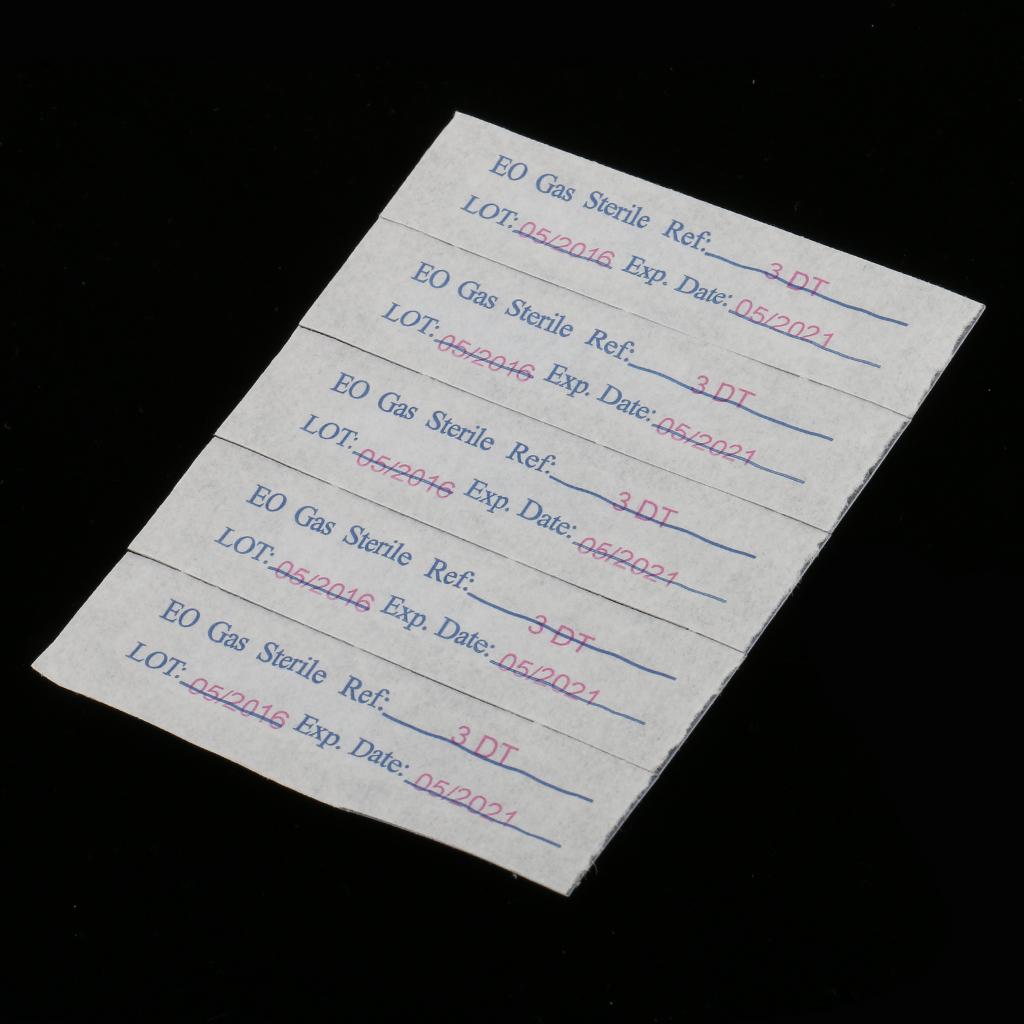 EO Gas Sterile Ref: 3 DT
LOT: 05/2016 Exp. Date: 05/2021
EO Gas Sterile Ref: 3 DT
LOT: 05/2016 Exp. Date: 05/2021
EO Gas Sterile Ref: 3 DT
LOT: 05/2016 Exp. Date: 05/2021
EO Gas Sterile Ref: 3 DT
LOT: 05/2016 Exp. Date: 05/2021
EO Gas Sterile Ref: 3 DT
LOT: 05/2016 Exp. Date: 05/2021